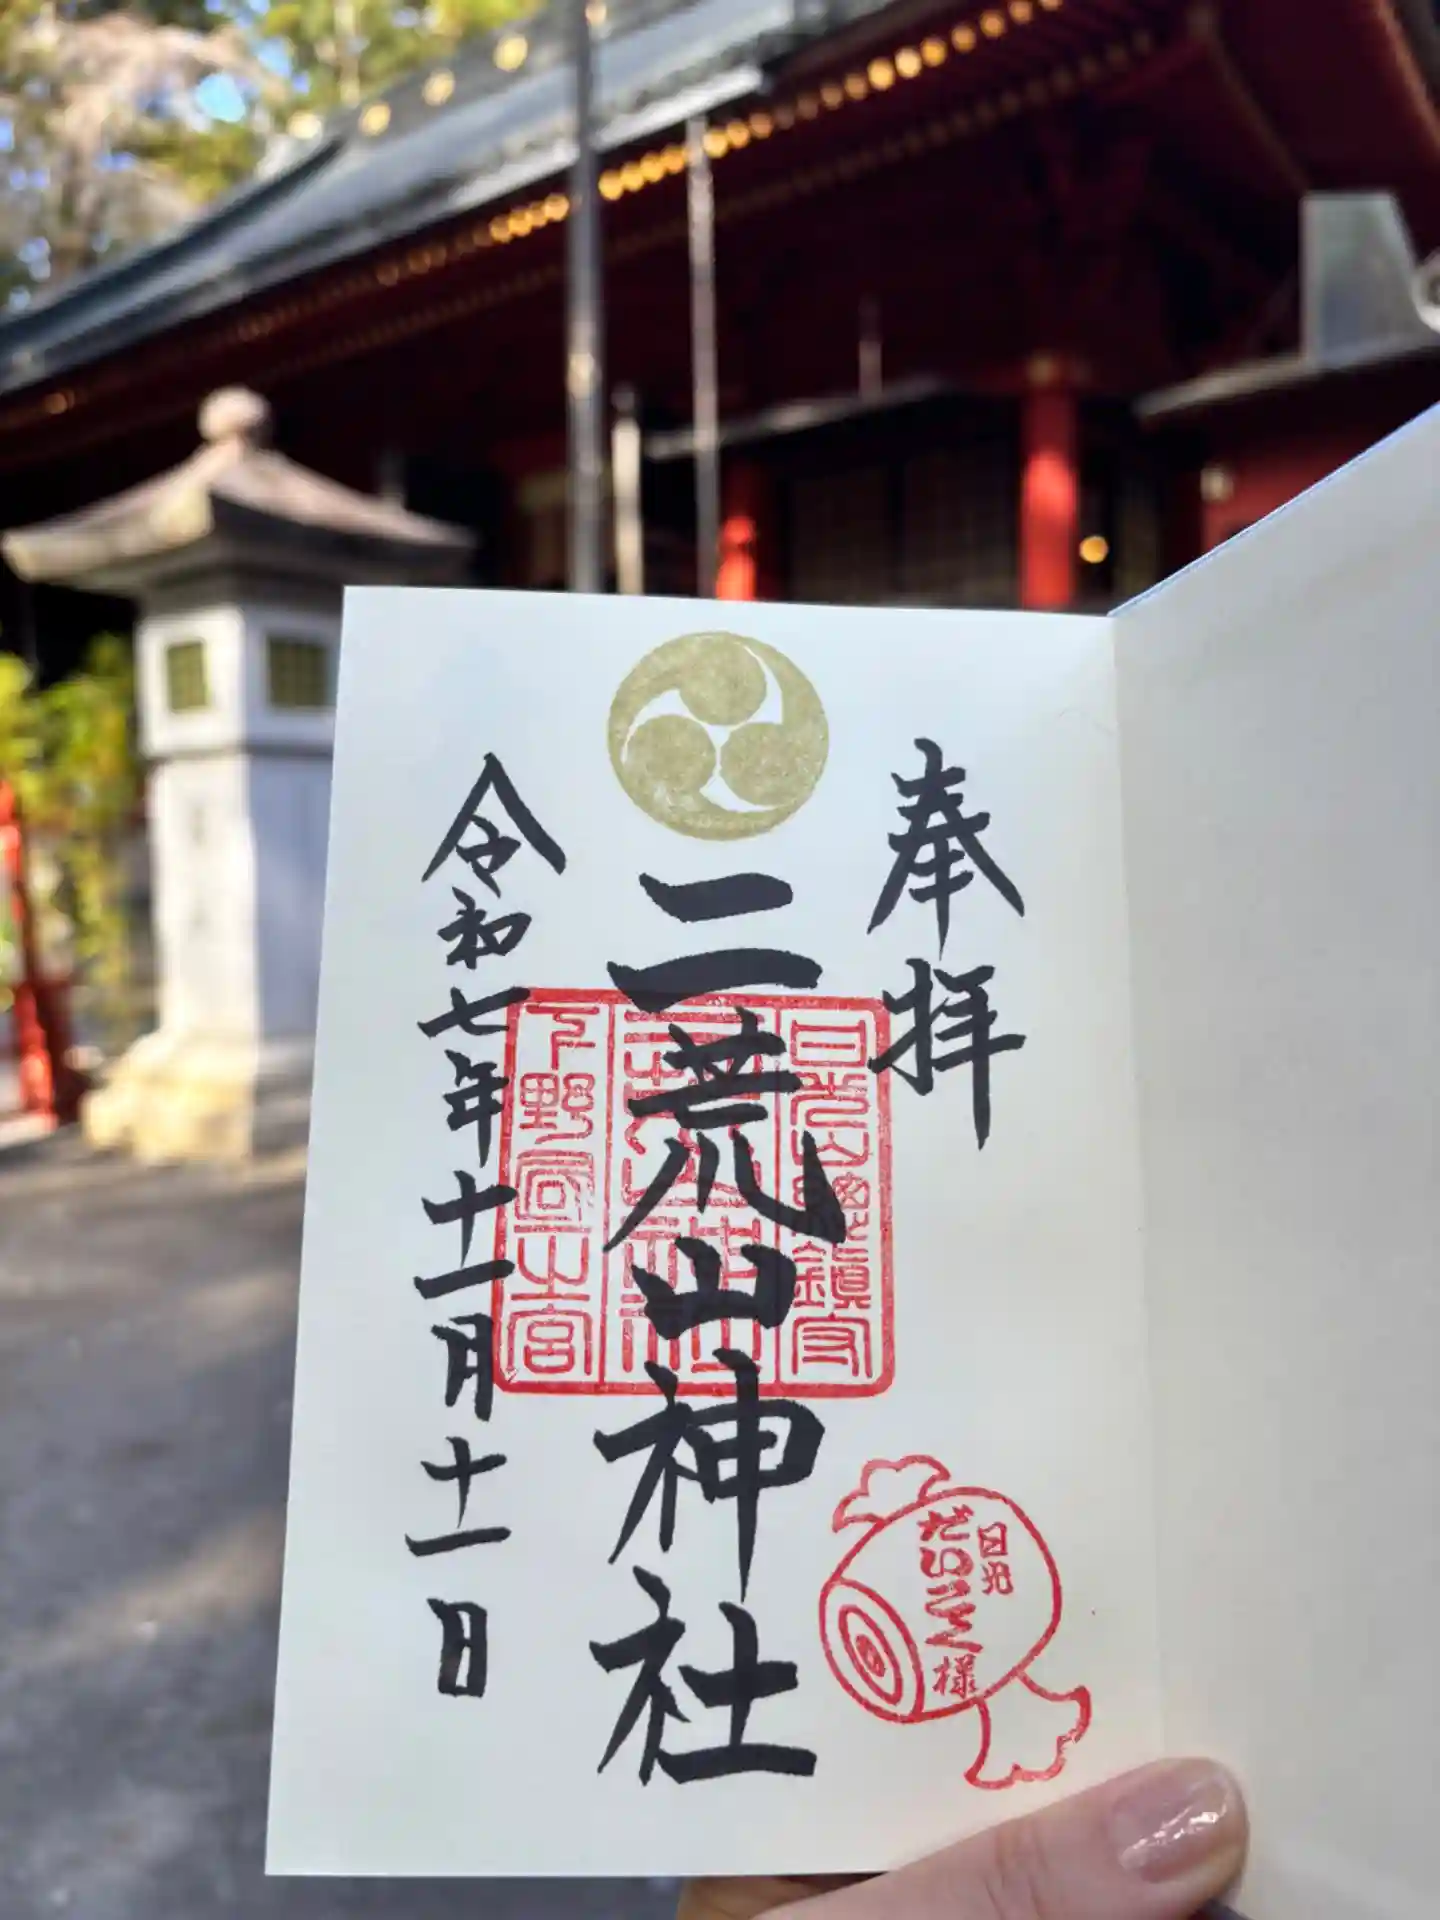 奉拝
日光山総鎮守
二荒山神社
二荒山神社
下野國一之宮
令和七年十一月十一日
日光
だいこく様